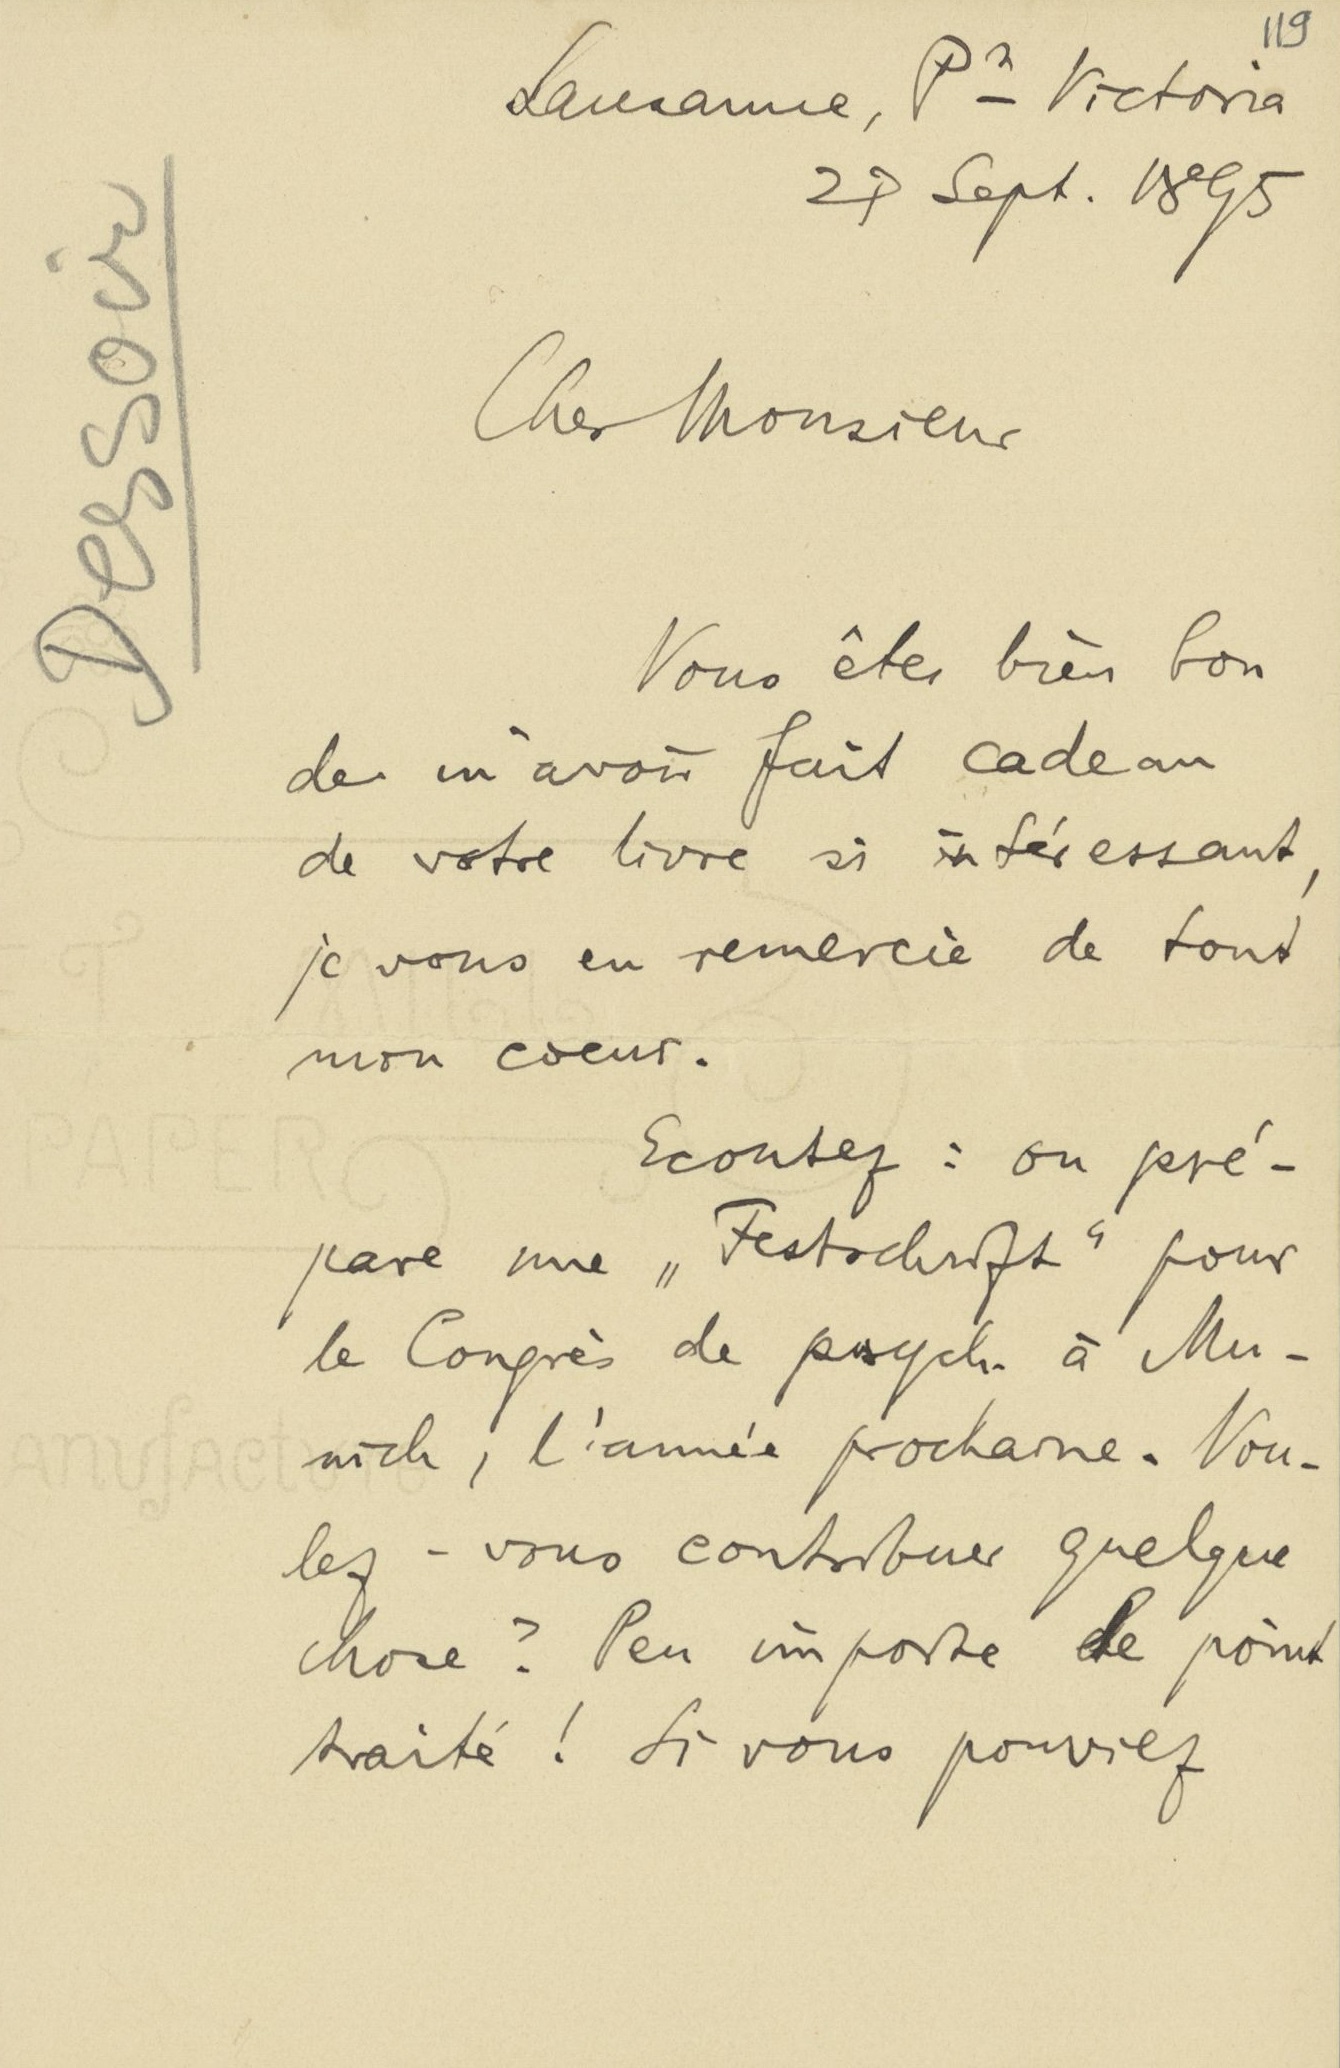 119
Lausanne, Pn Victoria
27 Sept. 1895
Dessoir
Cher Monsieur
Vous êtes bien bon
de m'avoir fait cadeau
de votre livre si intéressant,
je vous en remercie de tout
mon coeur.
Ecoutez : on pré-
pare une „Festschrift“ pour
le Congrès de psych. à Mu-
nich, l'année prochaine. Vou-
lez-vous contribuer quelque
chose ? Peu importe le point
traité ! Si vous pouviez
PAPER